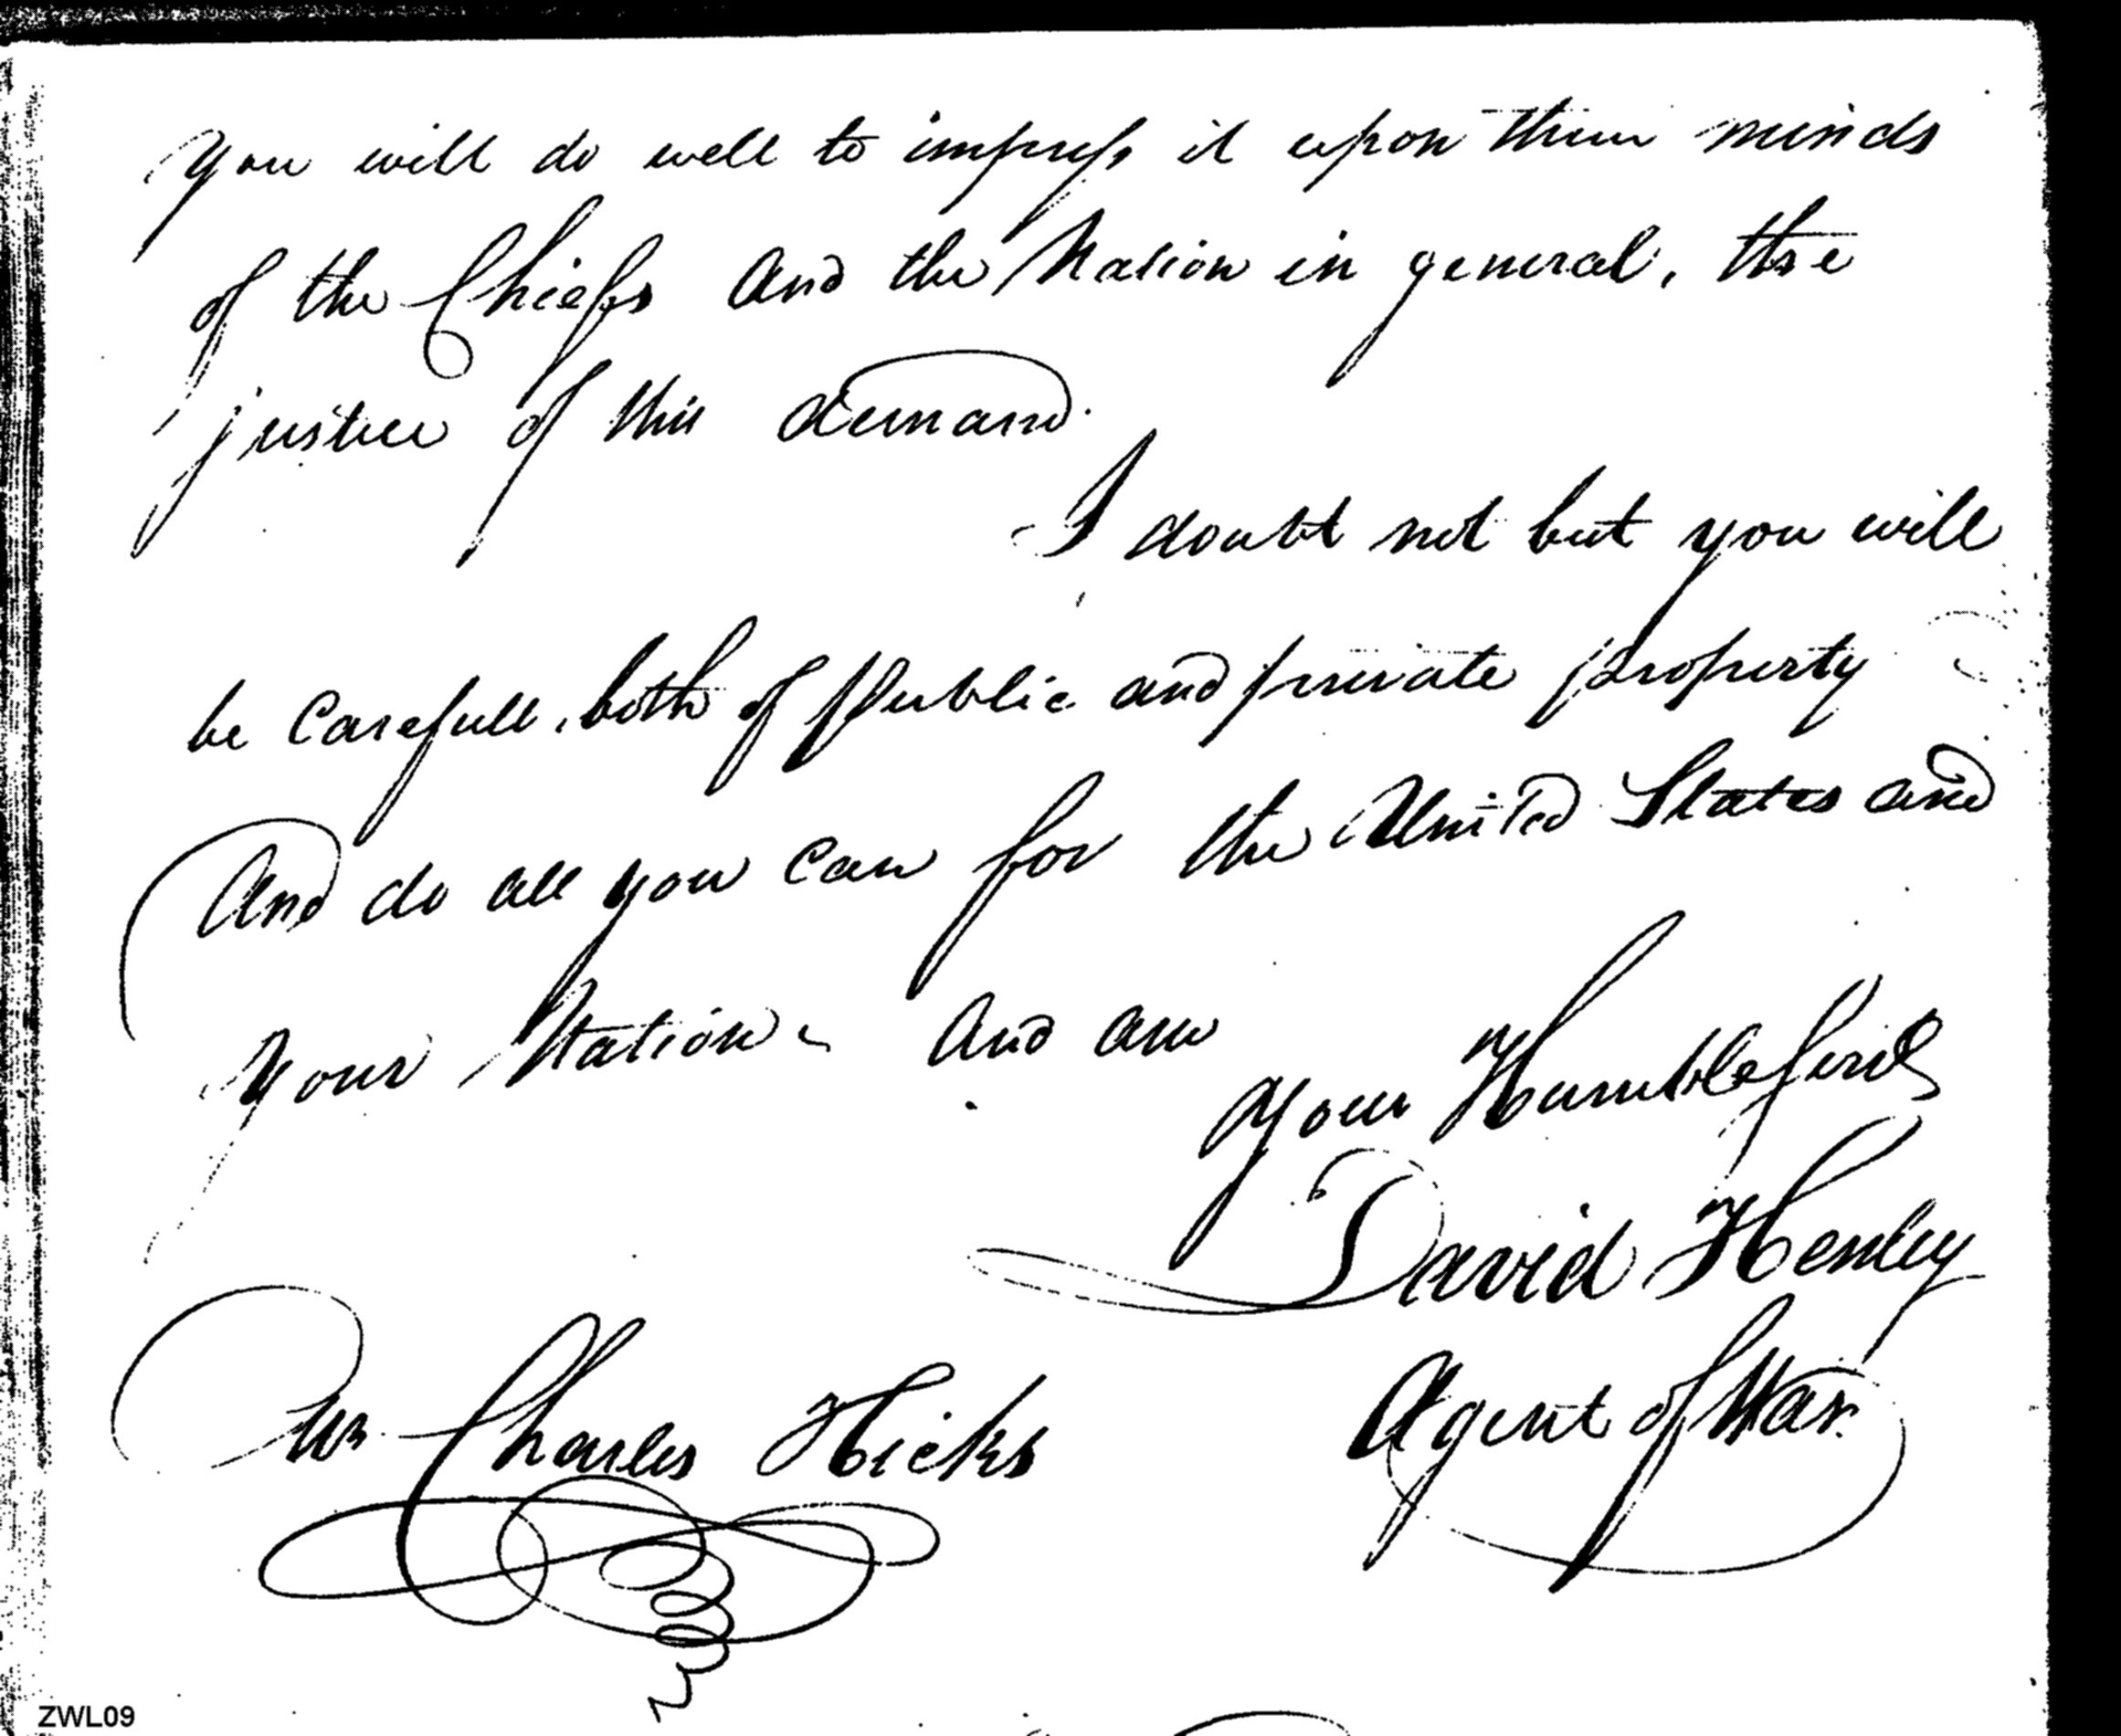 you will do well to impress it upon their minds
of the Chiefs And the Nation in general, the
justice of this demand.
I doubt not but you will
be Carefull, both of Public and private property
And do all you can for the United States and
your Nation - And am
your Humble Servt
David Henley
Agent of War.
Mr Charles Hicks
ZWL09